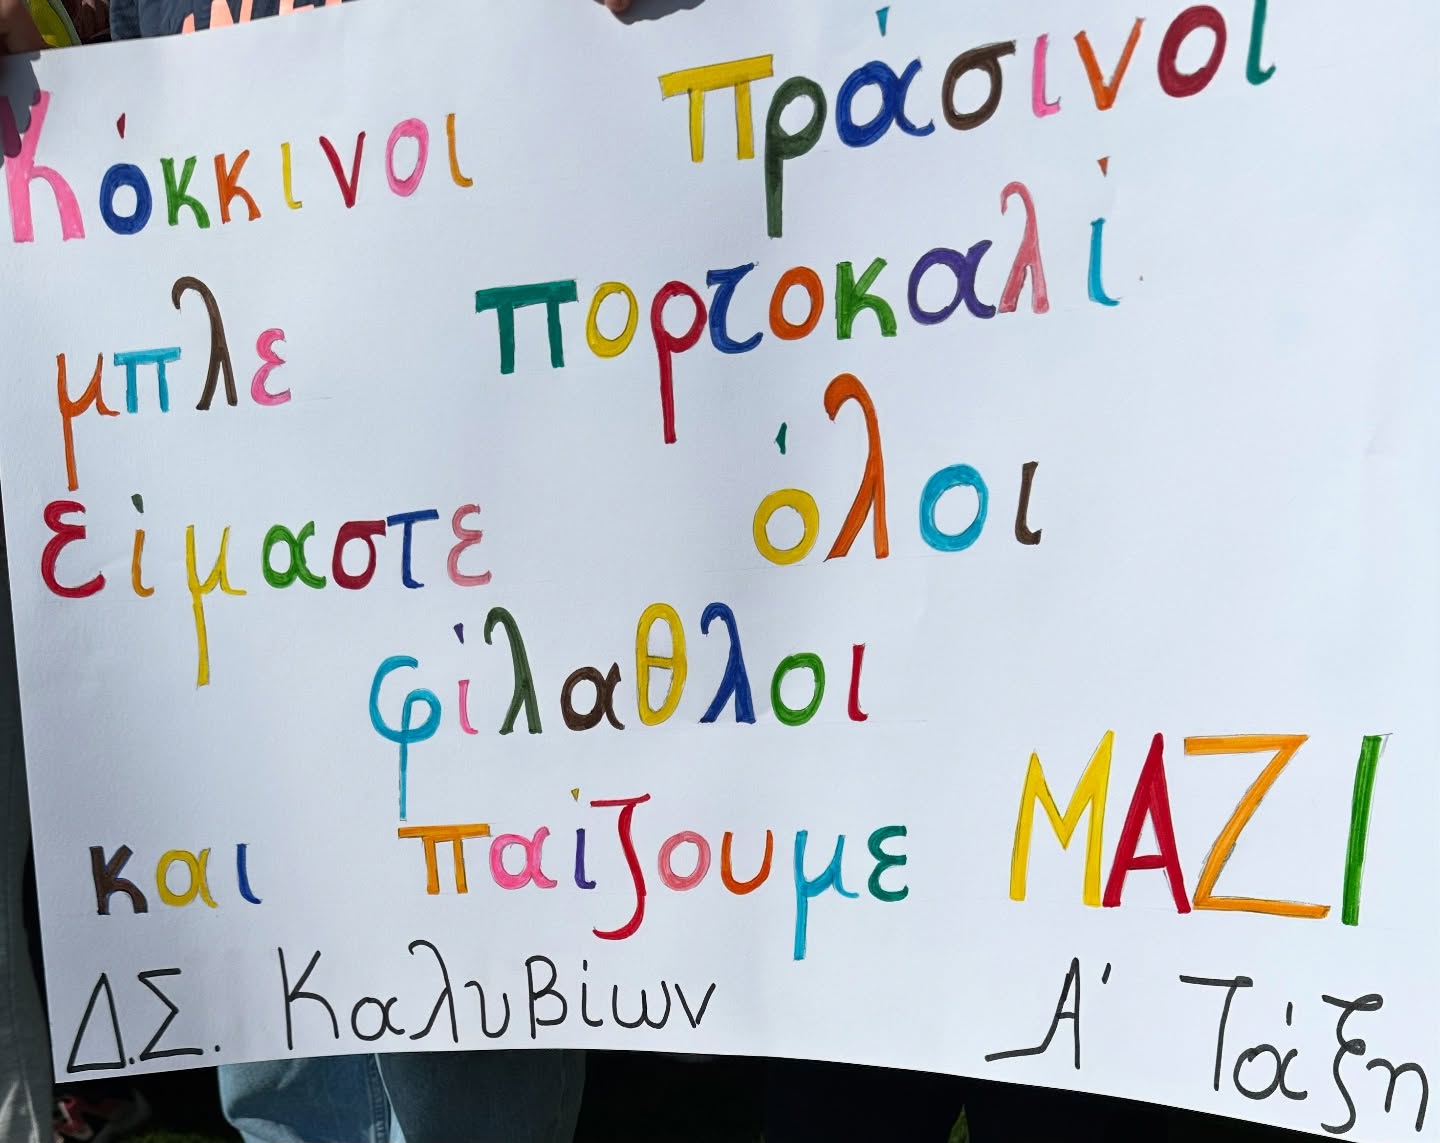 Κόκκινοι πράσινοι
μπλε πορτοκαλί
είμαστε όλοι
φίλαθλοι
και παίζουμε ΜΑΖΙ
Δ.Σ. Καλυβίων Α' Τάξη